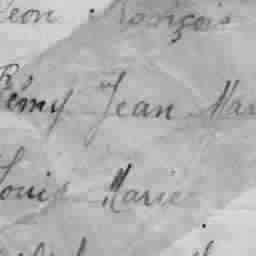 Léon François
Rémy Jean Mar
Louis Marie